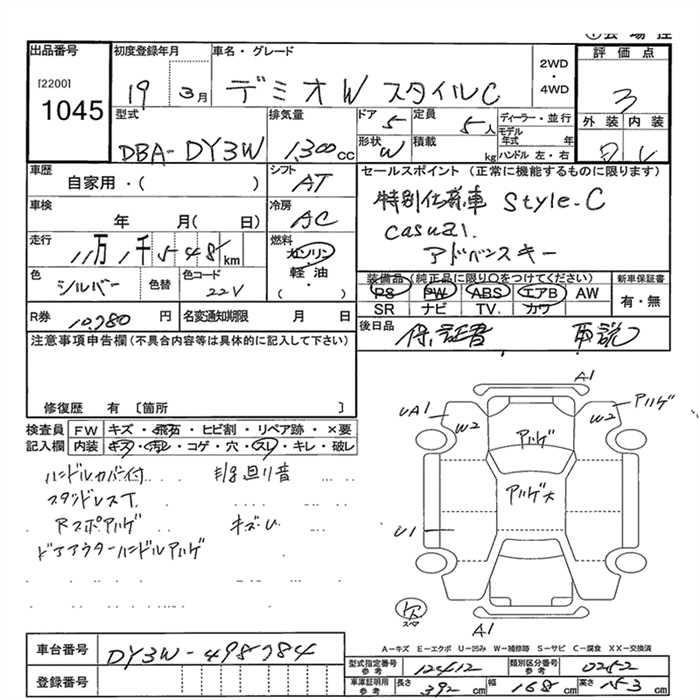 出品番号
[2200]
1045
初度登録年月
19 3月
車名・グレード
デミオW スタイルC
2WD
・
4WD
評価点
3
型式
DBA-DY3W
排気量
1,300cc
ドア
5
定員
5人
形状
W
積載
kg
ディーラー・並行
モデル年式 年
ハンドル 左・右
外装 内装
車歴
自家用・( )
シフト
AT
セールスポイント(正常に機能するものに限ります)
特別仕様車 Style-C
casual.
アドバンスキー
車検
年 月( 日)
冷房
AC
走行
11万1千548km
燃料
ガソリン
・
軽油
・
( )
色
シルバー
色替
色コード
22V
装備品(純正品に限り○をつけてください)
PS PW ABS エアB AW
SR ナビ TV. カワ
新車保証書
有・無
R券
10,780円
名変通知期限 月 日
後日品
保証書 取説
注意事項申告欄(不具合内容等は具体的に記入して下さい)
修復歴 有 [箇所 ]
検査員記入欄
FW キズ・飛石・ヒビ割・リペア跡・×要
内装 キズ・汚レ・コゲ・穴・スレ・キレ・破レ
ハンドルカバー付
スタッドレスT.
Rスポアルゲ キズ・U
ドアアウターハンドルアルゲ
A1
UA1
W2
W2
アルゲ
アルゲ
アルゲ大
U1
スペア
A1
A-キズ E-エクボ U-凹み W-補修跡 S-サビ C-腐食 XX-交換済
車台番号
DY3W-498784
登録番号
型式指定番号
参考
12412
類別区分番号
参考
車庫証明用
参考
長さ 392cm
幅 168cm
高さ 153cm